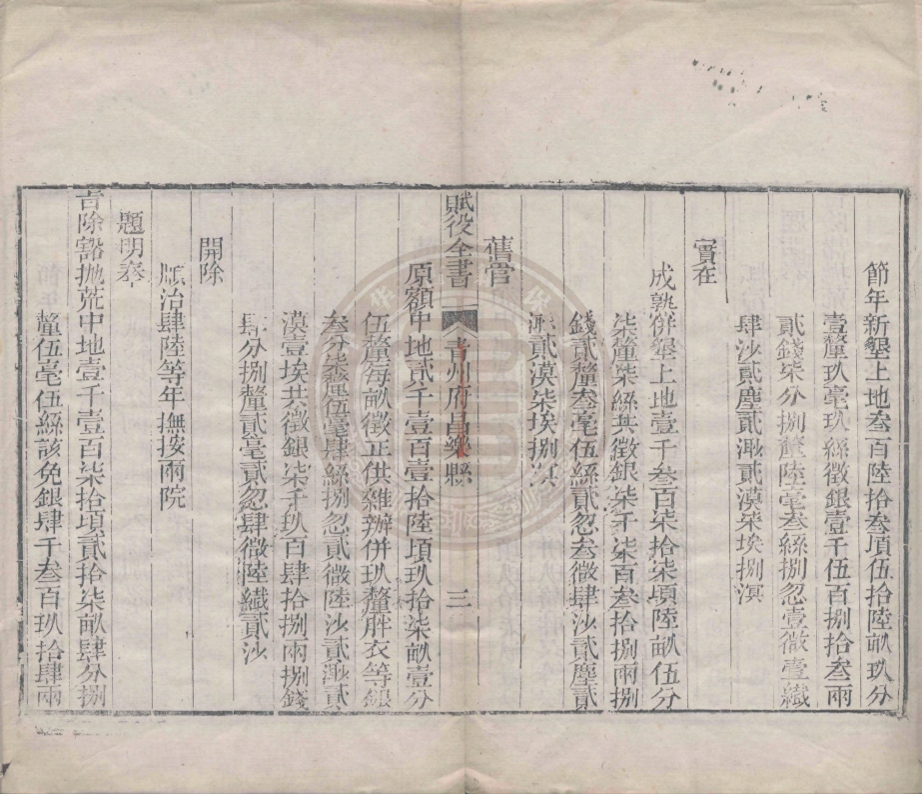 節年新墾上地叁百陸拾叁頃伍拾陸畝玖分
壹釐玖毫玖絲徵銀壹千伍百捌拾叁兩
貳錢柒分捌釐陸毫叁絲捌忽壹微壹纖
肆沙貳塵貳渺貳漠柒埃捌溟
實在
成熟併墾上地壹千叁百柒拾柒頃陸畝伍分
柒釐柒絲共徵銀柒千柒百叁拾捌兩捌
錢貳釐叁毫伍絲貳忽叁微肆沙貳塵貳
渺貳漠柒埃捌溟
舊管
賦役全書 青州府昌樂縣 三
原額中地貳千壹百壹拾陸頃玖拾柒畝壹分
伍釐每畝徵正供雜辦併玖釐胖衣等銀
叁分柒釐伍毫肆絲捌忽貳微陸沙貳渺貳
漠壹埃共徵銀柒千玖百肆拾捌兩捌錢
肆分捌釐貳毫貳忽肆微陸纖貳沙
開除
順治肆陸等年撫按兩院
題明奉
旨除豁拋荒中地壹千壹百柒拾頃貳拾柒畝肆分捌
釐伍毫伍絲該免銀肆千叁百玖拾肆兩